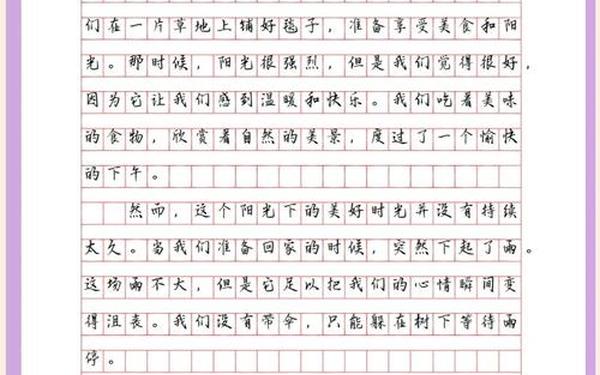 们在一片草地上铺好毯子，准备享受美食和阳
光。那时候，阳光很强烈，但是我们觉得很好，
因为它让我们感到温暖和快乐。我们吃着美味
的食物，欣赏着自然的美景，度过了一个愉快
的下午。
然而，这个阳光下的美好时光并没有持续
太久。当我们准备回家的时候，突然下起了雨。
这场雨不大，但是它足以把我们的心情瞬间变
得沮丧。我们没有带伞，只能躲在树下等待雨
停。